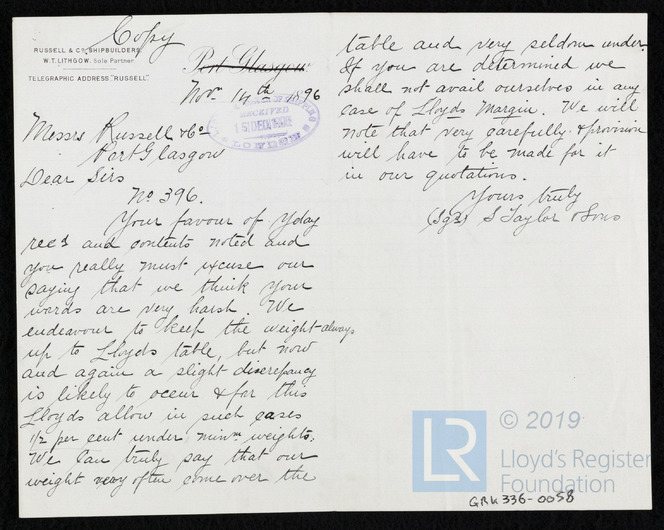 Copy
RUSSELL & CO. SHIPBUILDERS.
W. T. LITHGOW. Sole Partner.
TELEGRAPHIC ADDRESS "RUSSELL"
Port Glasgow
Novr 14th 1896
RECEIVED
15 DEC 1896
Messrs Russell & Co
Port Glasgow
Dear Sirs
No 396.
Your favour of Yday
recd and contents noted and
you really must excuse our
saying that we think your
words are very harsh. We
endeavour to keep the weight always
up to Lloyds table, but now
and again a slight discrepancy
is likely to occur & for this
Lloyds allow in such cases
1/2 per cent under minm weights.
We can truly say that our
weight very often come over the
table and very seldom under.
If you are determined we
shall not avail ourselves in any
case of Lloyds Margin. We will
note that very carefully & provision
will have to be made for it
in our quotations.
Yours truly
(Sgd) S Taylor & Sons
LR © 2019
Lloyd's Register
Foundation
GRK336-0058